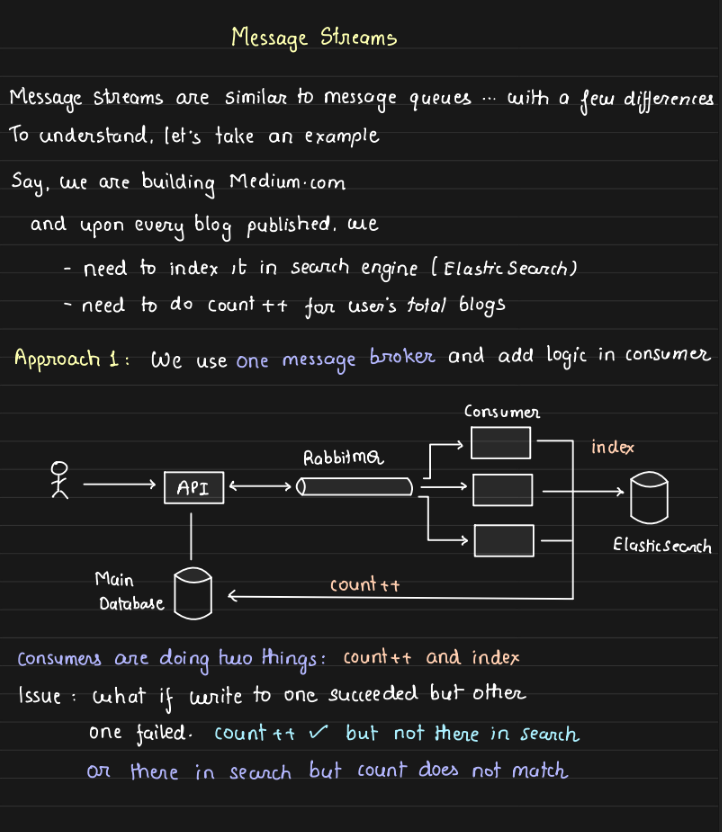 Message Streams
Message streams are similar to message queues ... with a few differences
To understand, let's take an example
Say, we are building Medium.com
and upon every blog published, we
- need to index it in search engine (ElasticSearch)
- need to do count ++ for user's total blogs
Approach 1: We use one message broker and add logic in consumer
Consumer
index
RabbitMQ
API
Elasticsearch
Main
Database
count ++
Consumers are doing two things: count ++ and index
Issue: what if write to one succeeded but other
one failed. count ++ ✓ but not there in search
or there in search but count does not match